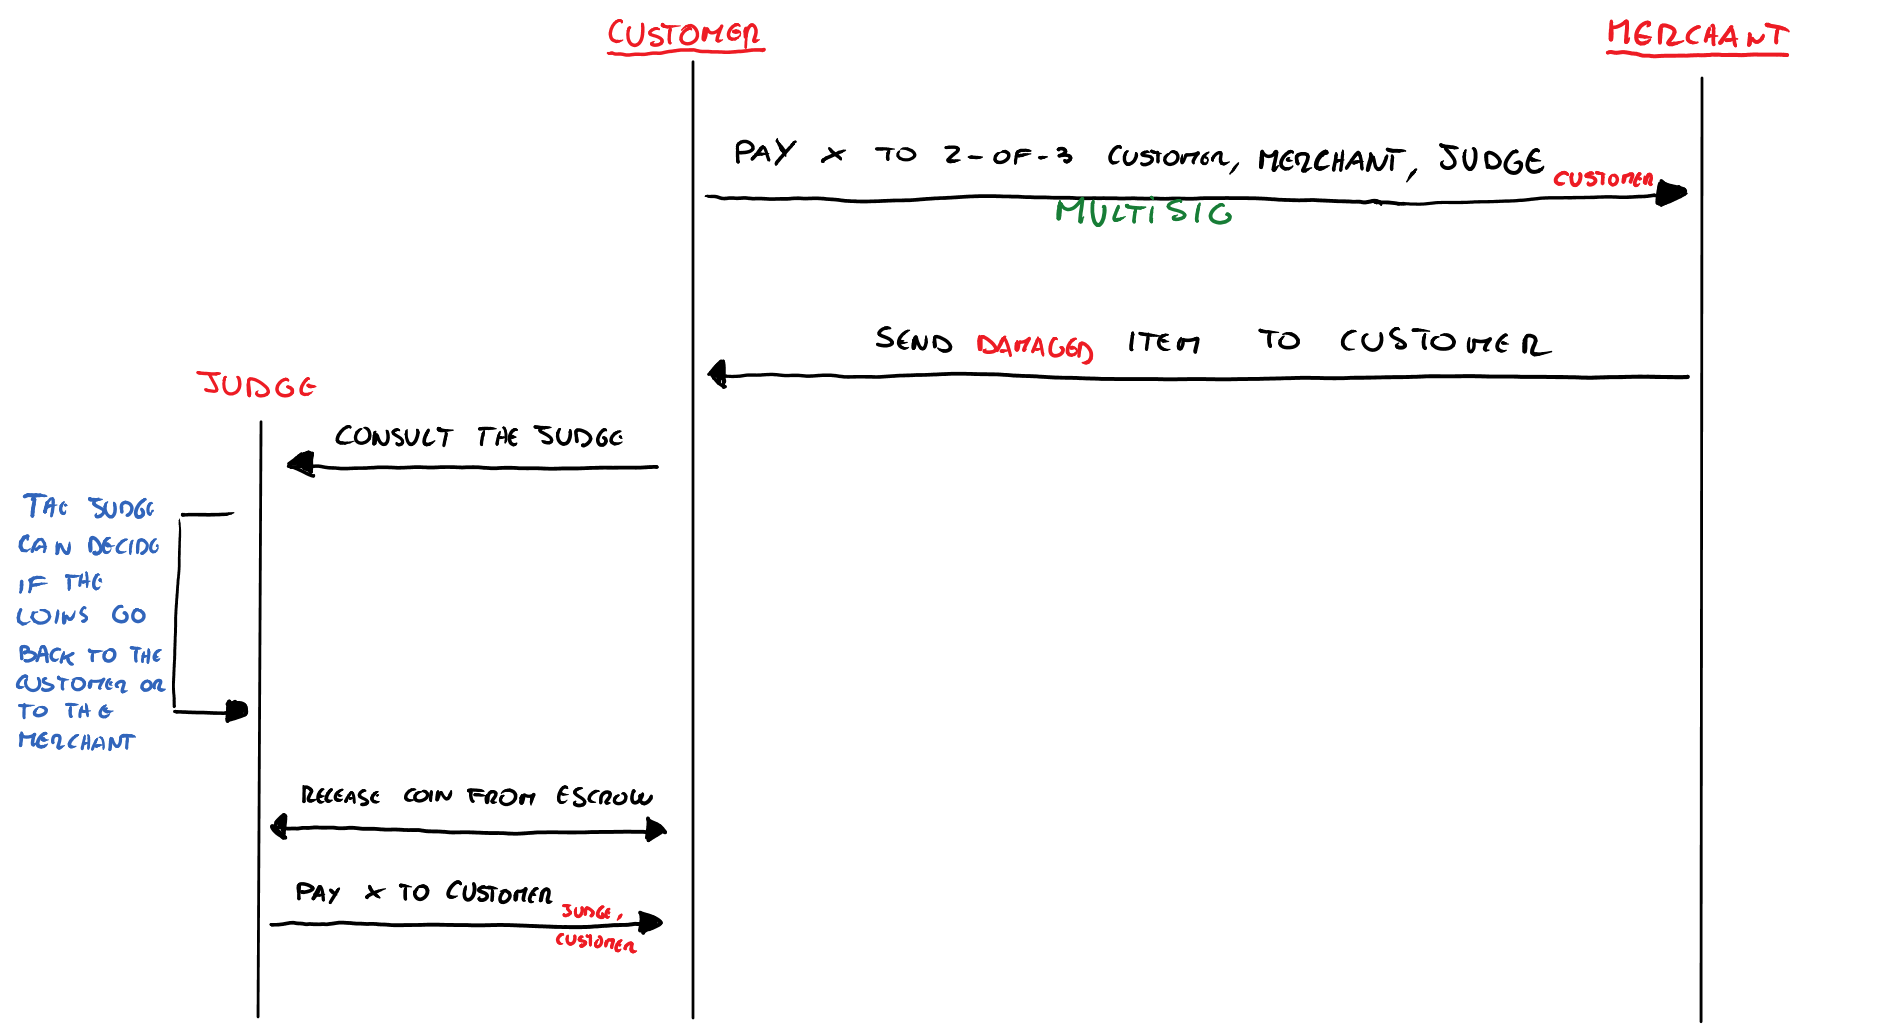 CUSTOMER
MERCHANT
PAY X TO 2-OF-3 CUSTOMER, MERCHANT, JUDGE CUSTOMER
MULTISIG
SEND DAMAGED ITEM TO CUSTOMER
JUDGE
CONSULT THE JUDGE
THE JUDGE
CAN DECIDE
IF THE
COINS GO
BACK TO THE
CUSTOMER OR
TO THE
MERCHANT
RELEASE COIN FROM ESCROW
PAY X TO CUSTOMER JUDGE,
CUSTOMER